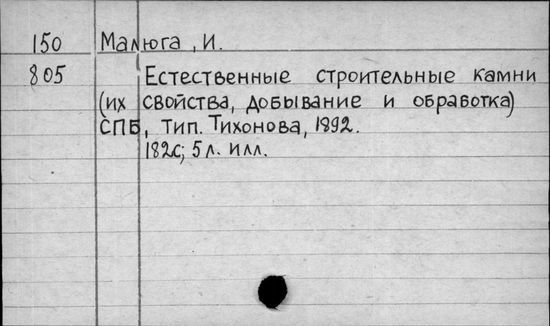 150 Малюга, И.
805 Естественные строительные камни
(их свойства, добывание и обработка)
СПБ, тип. Тихонова, 1892.
182с; 5л. илл.